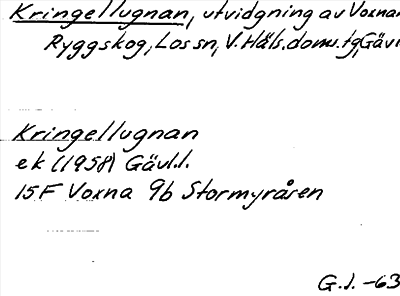 Kringellugnan, utvidgning av Voxnan
Ryggskog, Los sn, V. Häls. doms. tg, Gävl
Kringellugnan
ek (1958) Gävl. l.
15F Voxna 9b Stormyråsen
G.J. -63